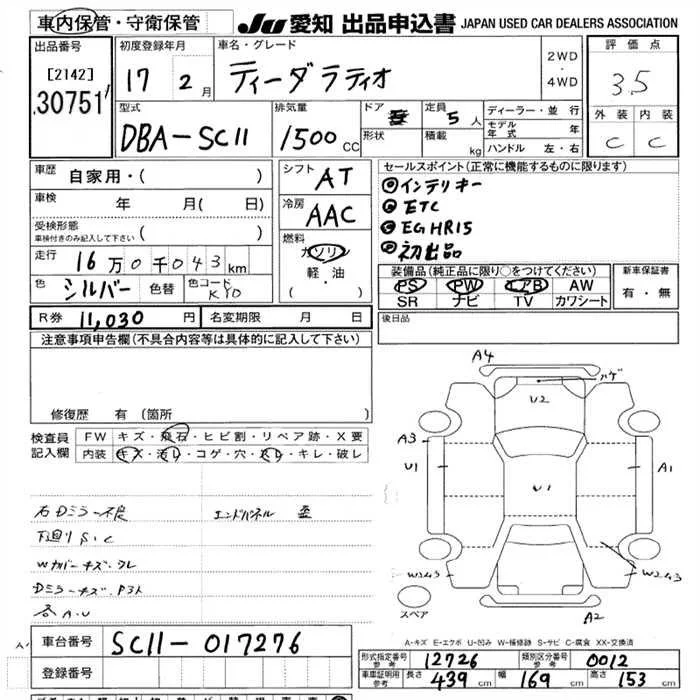 車内保管・守衛保管
JU 愛知 出品申込書 JAPAN USED CAR DEALERS ASSOCIATION
出品番号
[2142]
30751
初度登録年月
17 2月
車名・グレード
ティーダラティオ
2WD
・
4WD
評価点
3.5
外装 内装
C C
型式
DBA-SC11
排気量
1500 CC
ドア
形状
定員 5人
積載 kg
ディーラー・並行
モデル年式 年
ハンドル 左・右
車歴 自家用・( )
車検 年 月( 日)
受検形態
車検付きのみ記入して下さい ( )
走行 16万0千043km
色 シルバー 色替 色コード KY0
シフト AT
冷房 AAC
燃料
ガソリン
軽・油
( )
セールスポイント(正常に機能するものに限ります)
◎インテリキー
◎ETC
◎EG HR15
◎初出品
装備品(純正品に限り○をつけてください)
PS PW エアB AW
SR ナビ TV カワシート
新車保証書
有・無
R券 11,030円 名変期限 月 日
後日品
注意事項申告欄(不具合内容等は具体的に記入して下さい)
修復歴 有(箇所 )
検査員記入欄
FW キズ・飛石・ヒビ割・リペア跡・X要
内装 キズ・汚レ・コゲ・穴・スレ・キレ・破レ
右Dミラー不良 エンドパネル 歪
下廻りS.C
Wカバーキズ.ワレ
Dミラーキズ.
各A.U
A4
ハゲ
U2
A3
U1
A1
U1
W2 W3
W2 W3
スペア
A2
A-キズ E-エクボ U-凹み W-補修跡 S-サビ C-腐食 XX-交換済
車台番号 SC11-017276
登録番号
形式指定番号 参考 12726 類別区分番号 参考 0012
車庫証明用 参考 長さ 439cm 幅 169cm 高さ 153cm